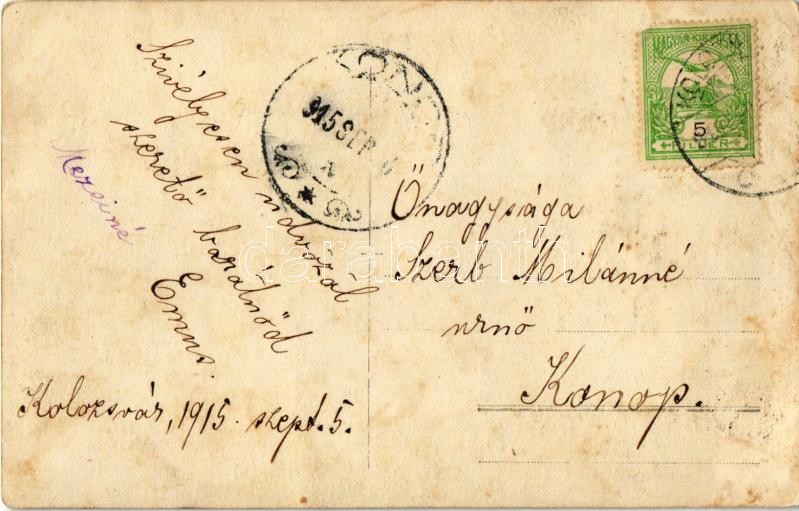 Szivélyesen üdvözöl
szerető barátnőd
Emmi.
Mezeiné
Kolozsvár, 1915. szept. 5.
915 SEP
MAGYAR KIR. POSTA
5
FILLÉR
Őnagysága
Szerb Milánné
urnő
Konop.
darabanth